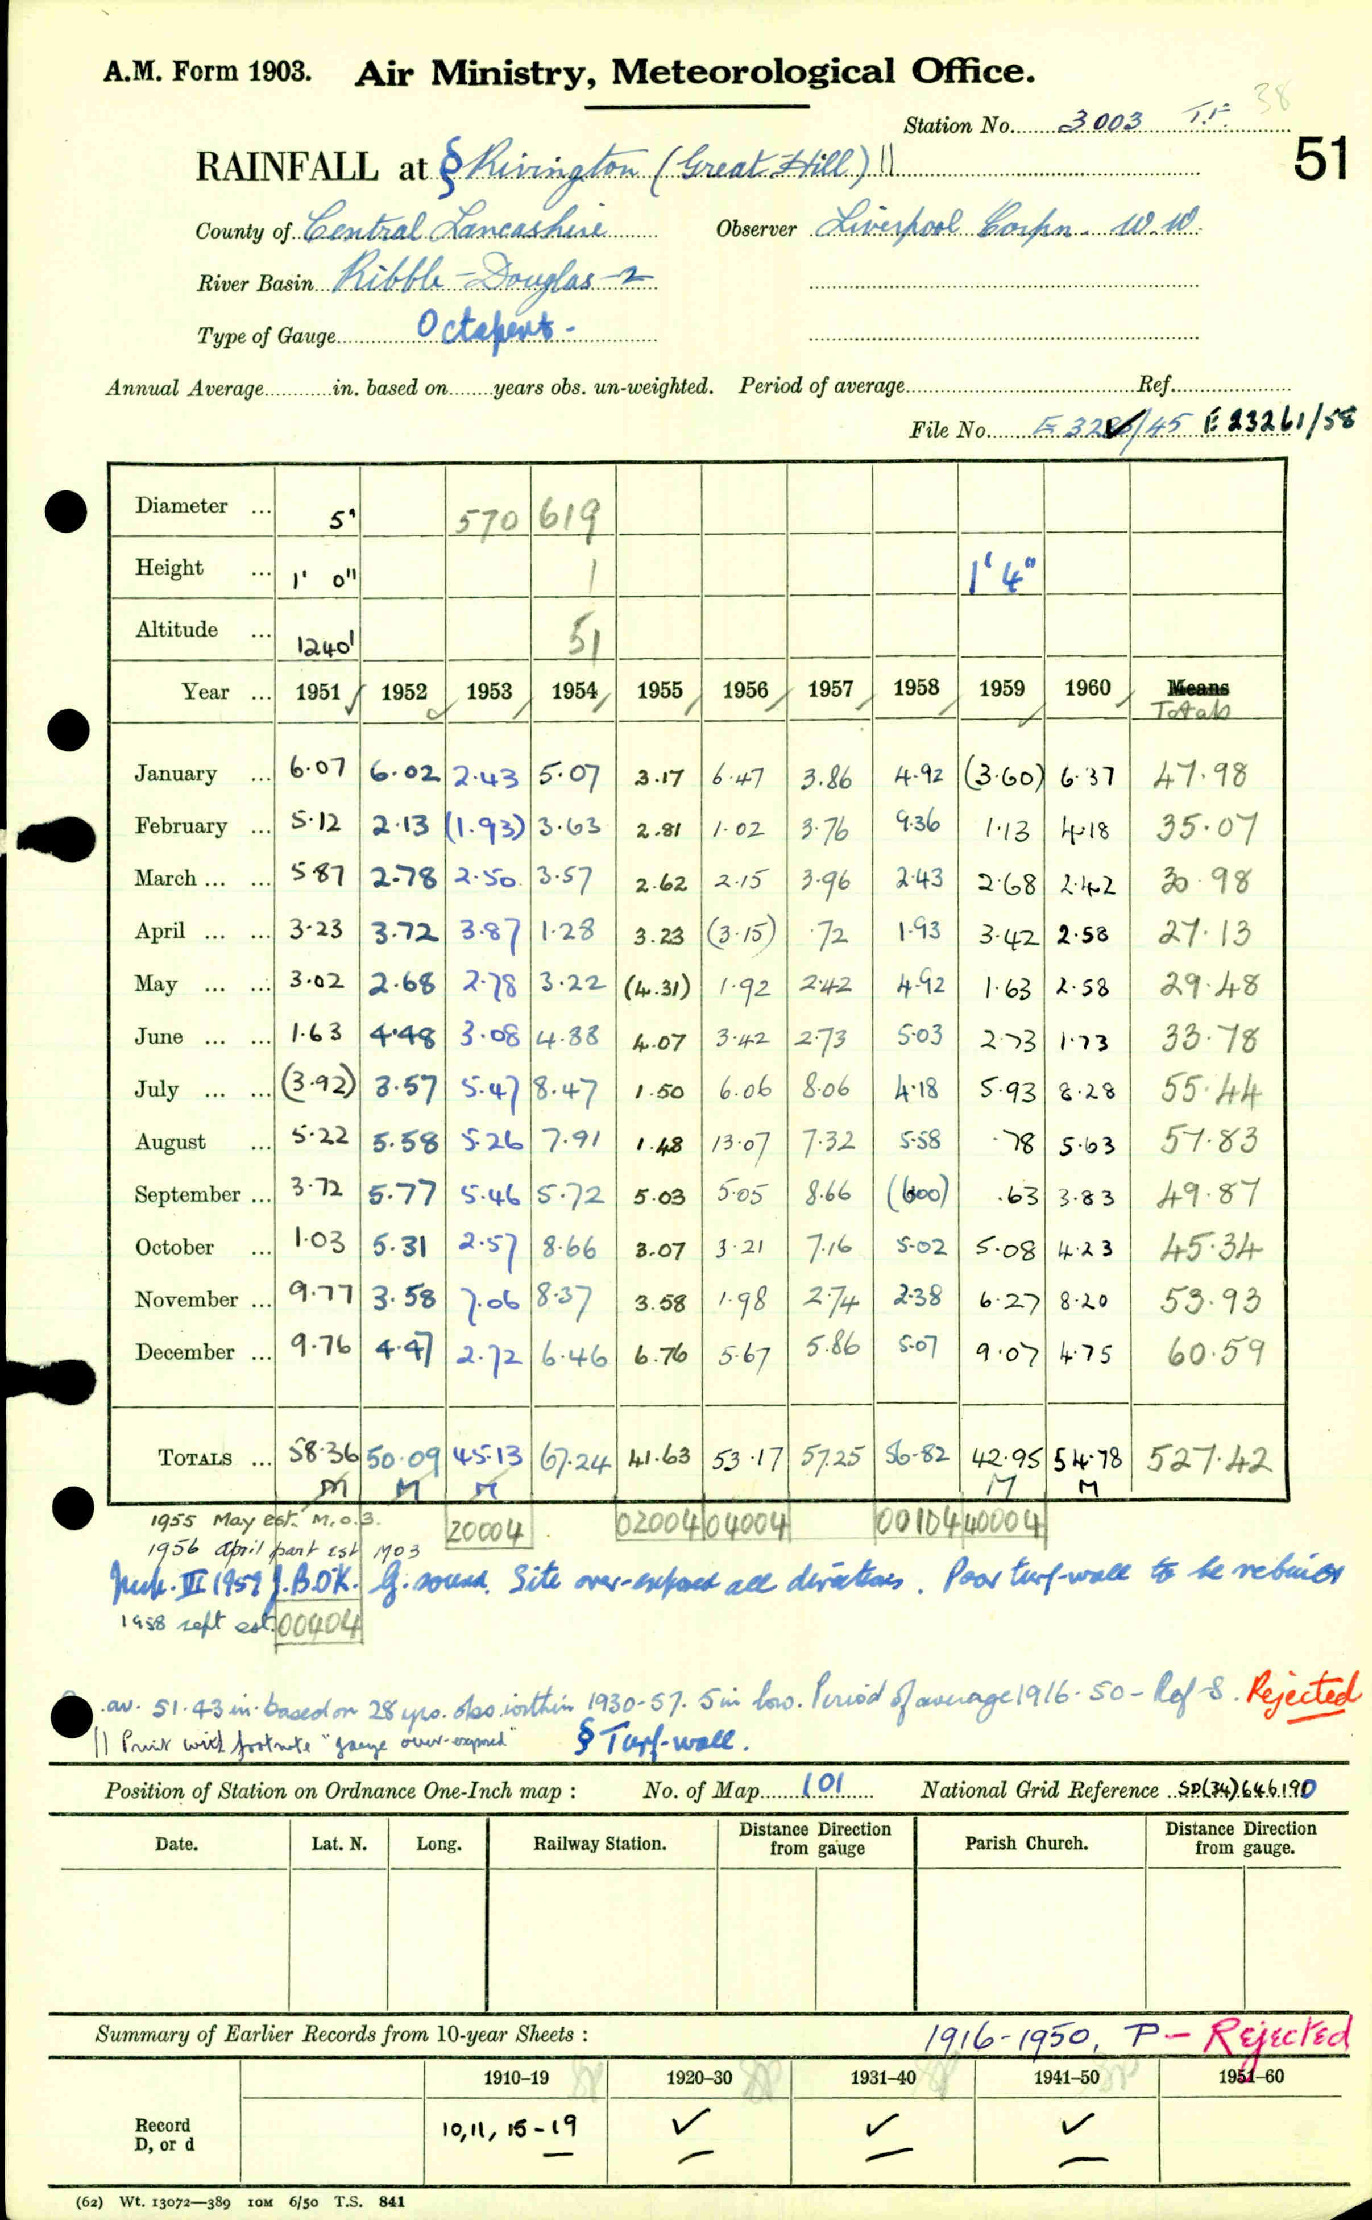 A.M. Form 1903. Air Ministry, Meteorological Office.
38
Station No. 3003 T.F.
51
RAINFALL at § Rivington (Great Hill) ||
County of Central Lancashire Observer Liverpool Corpn. W.W.
River Basin Ribble - Douglas - 2
Type of Gauge Octapent.
Annual Average in. based on years obs. un-weighted. Period of average Ref.
File No. /45 E 23261/58
Diameter ... 5" 570 619
Height ... 1' 0" 1 1' 4"
Altitude ... 1240' 51
Year ... 1951 1952 1953 1954 1955 1956 1957 1958 1959 1960 Means
Totals
January ... 6.07 6.02 2.43 5.07 3.17 6.47 3.86 4.92 (3.60) 6.37 47.98
February ... 5.12 2.13 (1.93) 3.63 2.81 1.02 3.76 9.36 1.13 4.18 35.07
March ... ... 5.87 2.78 2.50 3.57 2.62 2.15 3.96 2.43 2.68 2.42 30.98
April ... ... 3.23 3.72 3.87 1.28 3.23 (3.15) .72 1.93 3.42 2.58 27.13
May ... ... 3.02 2.68 2.78 3.22 (4.31) 1.92 2.42 4.92 1.63 2.58 29.48
June ... ... 1.63 4.48 3.08 4.88 4.07 3.42 2.73 5.03 2.73 1.73 33.78
July ... ... (3.92) 3.57 5.47 8.47 1.50 6.06 8.06 4.18 5.93 8.28 55.44
August ... 5.22 5.58 5.26 7.91 1.48 13.07 7.32 5.58 .78 5.63 57.83
September ... 3.72 5.77 5.46 5.72 5.03 5.05 8.66 (6.00) .63 3.83 49.87
October ... 1.03 5.31 2.57 8.66 3.07 3.21 7.16 5.02 5.08 4.23 45.34
November ... 9.77 3.58 7.06 8.37 3.58 1.98 2.74 2.38 6.27 8.20 53.93
December ... 9.76 4.47 2.72 6.46 6.76 5.67 5.86 5.07 9.07 4.75 60.59
TOTALS ... 58.36 50.09 45.13 67.24 41.63 53.17 57.25 56.82 42.95 54.78 527.42
M M M M M
1955 May est. M.O.3. 20004 02004 04004 00104 40004
1956 april part est MO3
III 1959 J.B.O'K. G. sound. Site over-exposed all directions. Poor turf-wall to be
1958 sept est. 00404
av. 51.43 in. based on 28 yrs. obs. within 1930-57. 5 in low. Period of average 1916-50 - Ref S. Rejected
|| Print with footnote "gauge over-exposed" § Turf-wall.
Position of Station on Ordnance One-Inch map : No. of Map 101 National Grid Reference SD(34)646190
Date. Lat. N. Long. Railway Station. Distance Direction from gauge Parish Church. Distance Direction from gauge.
Summary of Earlier Records from 10-year Sheets : 1916-1950, P - Rejected
1910-19 1920-30 1931-40 1941-50 1951-60
Record
D, or d
10, 11, 15-19 ✓ ✓ ✓
(62) Wt. 13072—389 10M 6/50 T.S. 841